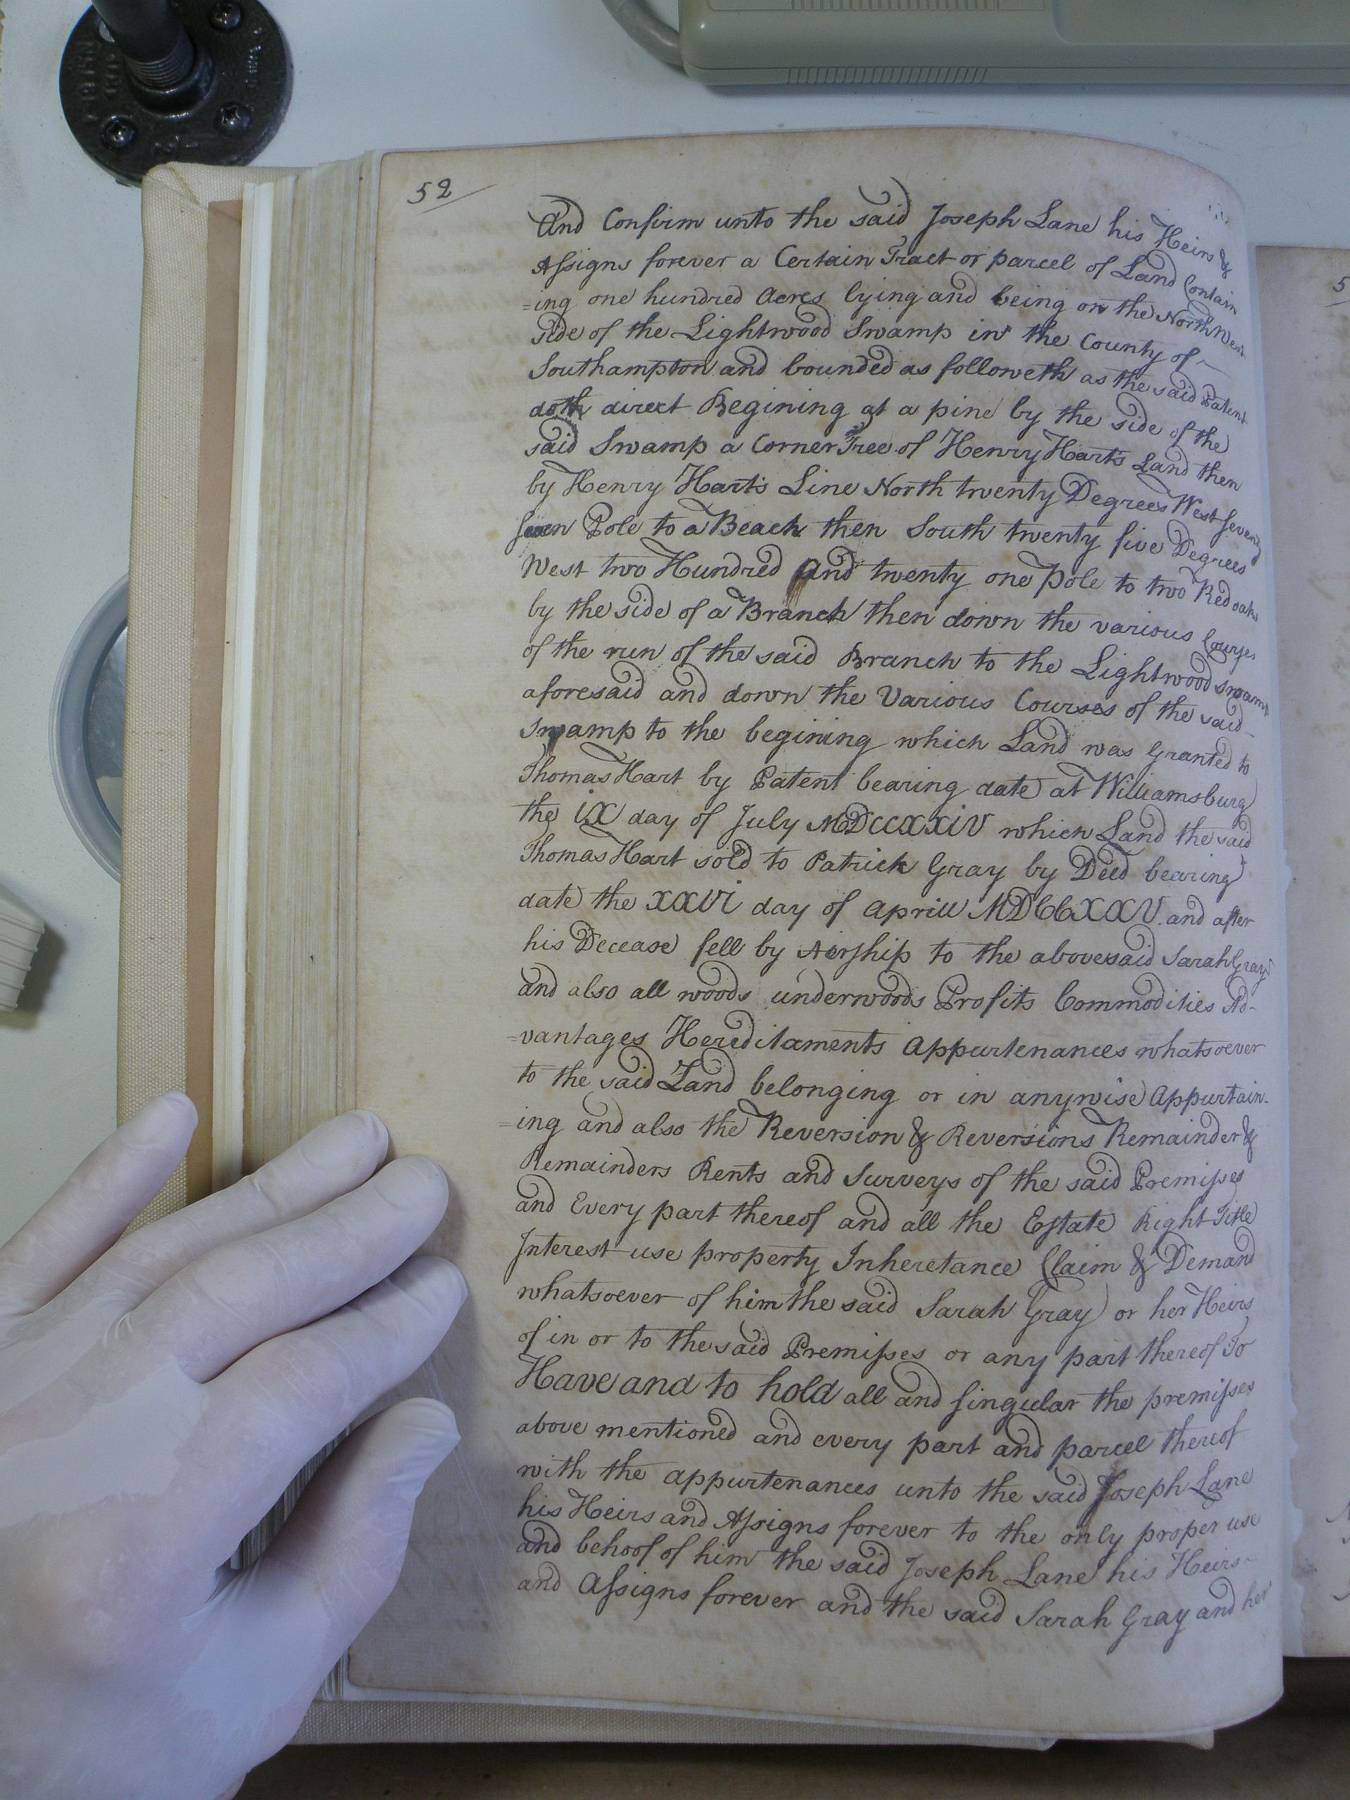 52
And Confirm unto the said Joseph Lane his Heirs &
Assigns forever a Certain Tract or parcel of Land Contain
=ing one hundred Acres lying and being on the North West
Side of the Lightwood Swamp in the County of
Southampton and bounded as followeth as the said Patent
doth direct Begining at a pine by the side of the
said Swamp a Corner Tree of Henry Harts Land then
by Henry Harts Line North twenty Degrees West Seventy
seven Pole to a Beach then South twenty five Degrees
West two Hundred and twenty one Pole to two Red oaks
by the side of a Branch then down the various Courses
of the run of the said Branch to the Lightwood swamp
aforesaid and down the Various Courses of the said
Swamp to the begining which Land was Granted to
Thomas Hart by Patent bearing date at Williamsburg
the IX day of July MDCCXXIV which Land the said
Thomas Hart sold to Patrick Gray by Deed bearing
date the XXVI day of Aprill MDCCXXXV and after
his Decease fell by Airship to the abovesaid Sarah Gray
and also all woods underwoods Profits Commodities Ad-
=vantages Hereditaments Appurtenances whatsoever
to the said Land belonging or in anywise Appurtain-
=ing and also the Reversion & Reversions Remainder &
Remainders Rents and Surveys of the said Premisses
and Every part thereof and all the Estate Right Title
Interest use property Inheretance Claim & Demand
whatsoever of him the said Sarah Gray or her Heirs
of in or to the said Premisses or any part thereof To
Have and to hold all and singular the premisses
above mentioned and every part and parcel thereof
with the appurtenances unto the said Joseph Lane
his Heirs and Assigns forever to the only proper use
and behoof of him the said Joseph Lane his Heirs
and Assigns forever and the said Sarah Gray and her